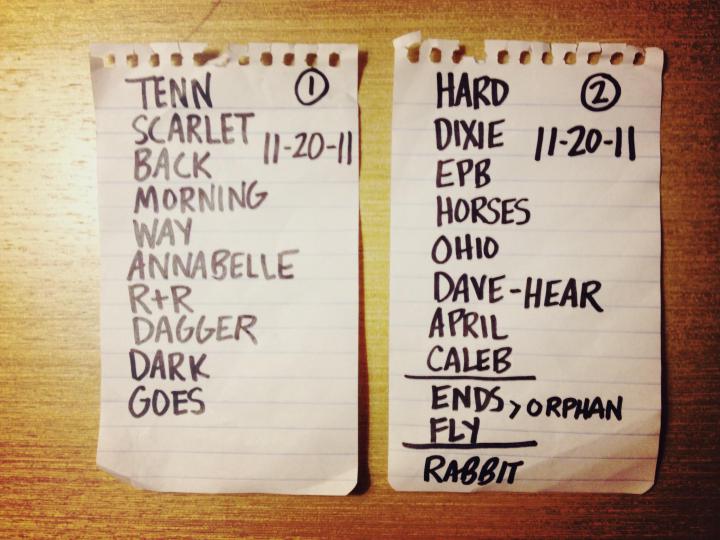 TENN ①
SCARLET
11-20-11
BACK
MORNING
WAY
ANNABELLE
R+R
DAGGER
DARK
GOES
HARD ②
DIXIE 11-20-11
EPB
HORSES
OHIO
DAVE-HEAR
APRIL
CALEB
ENDS > ORPHAN
FLY
RABBIT